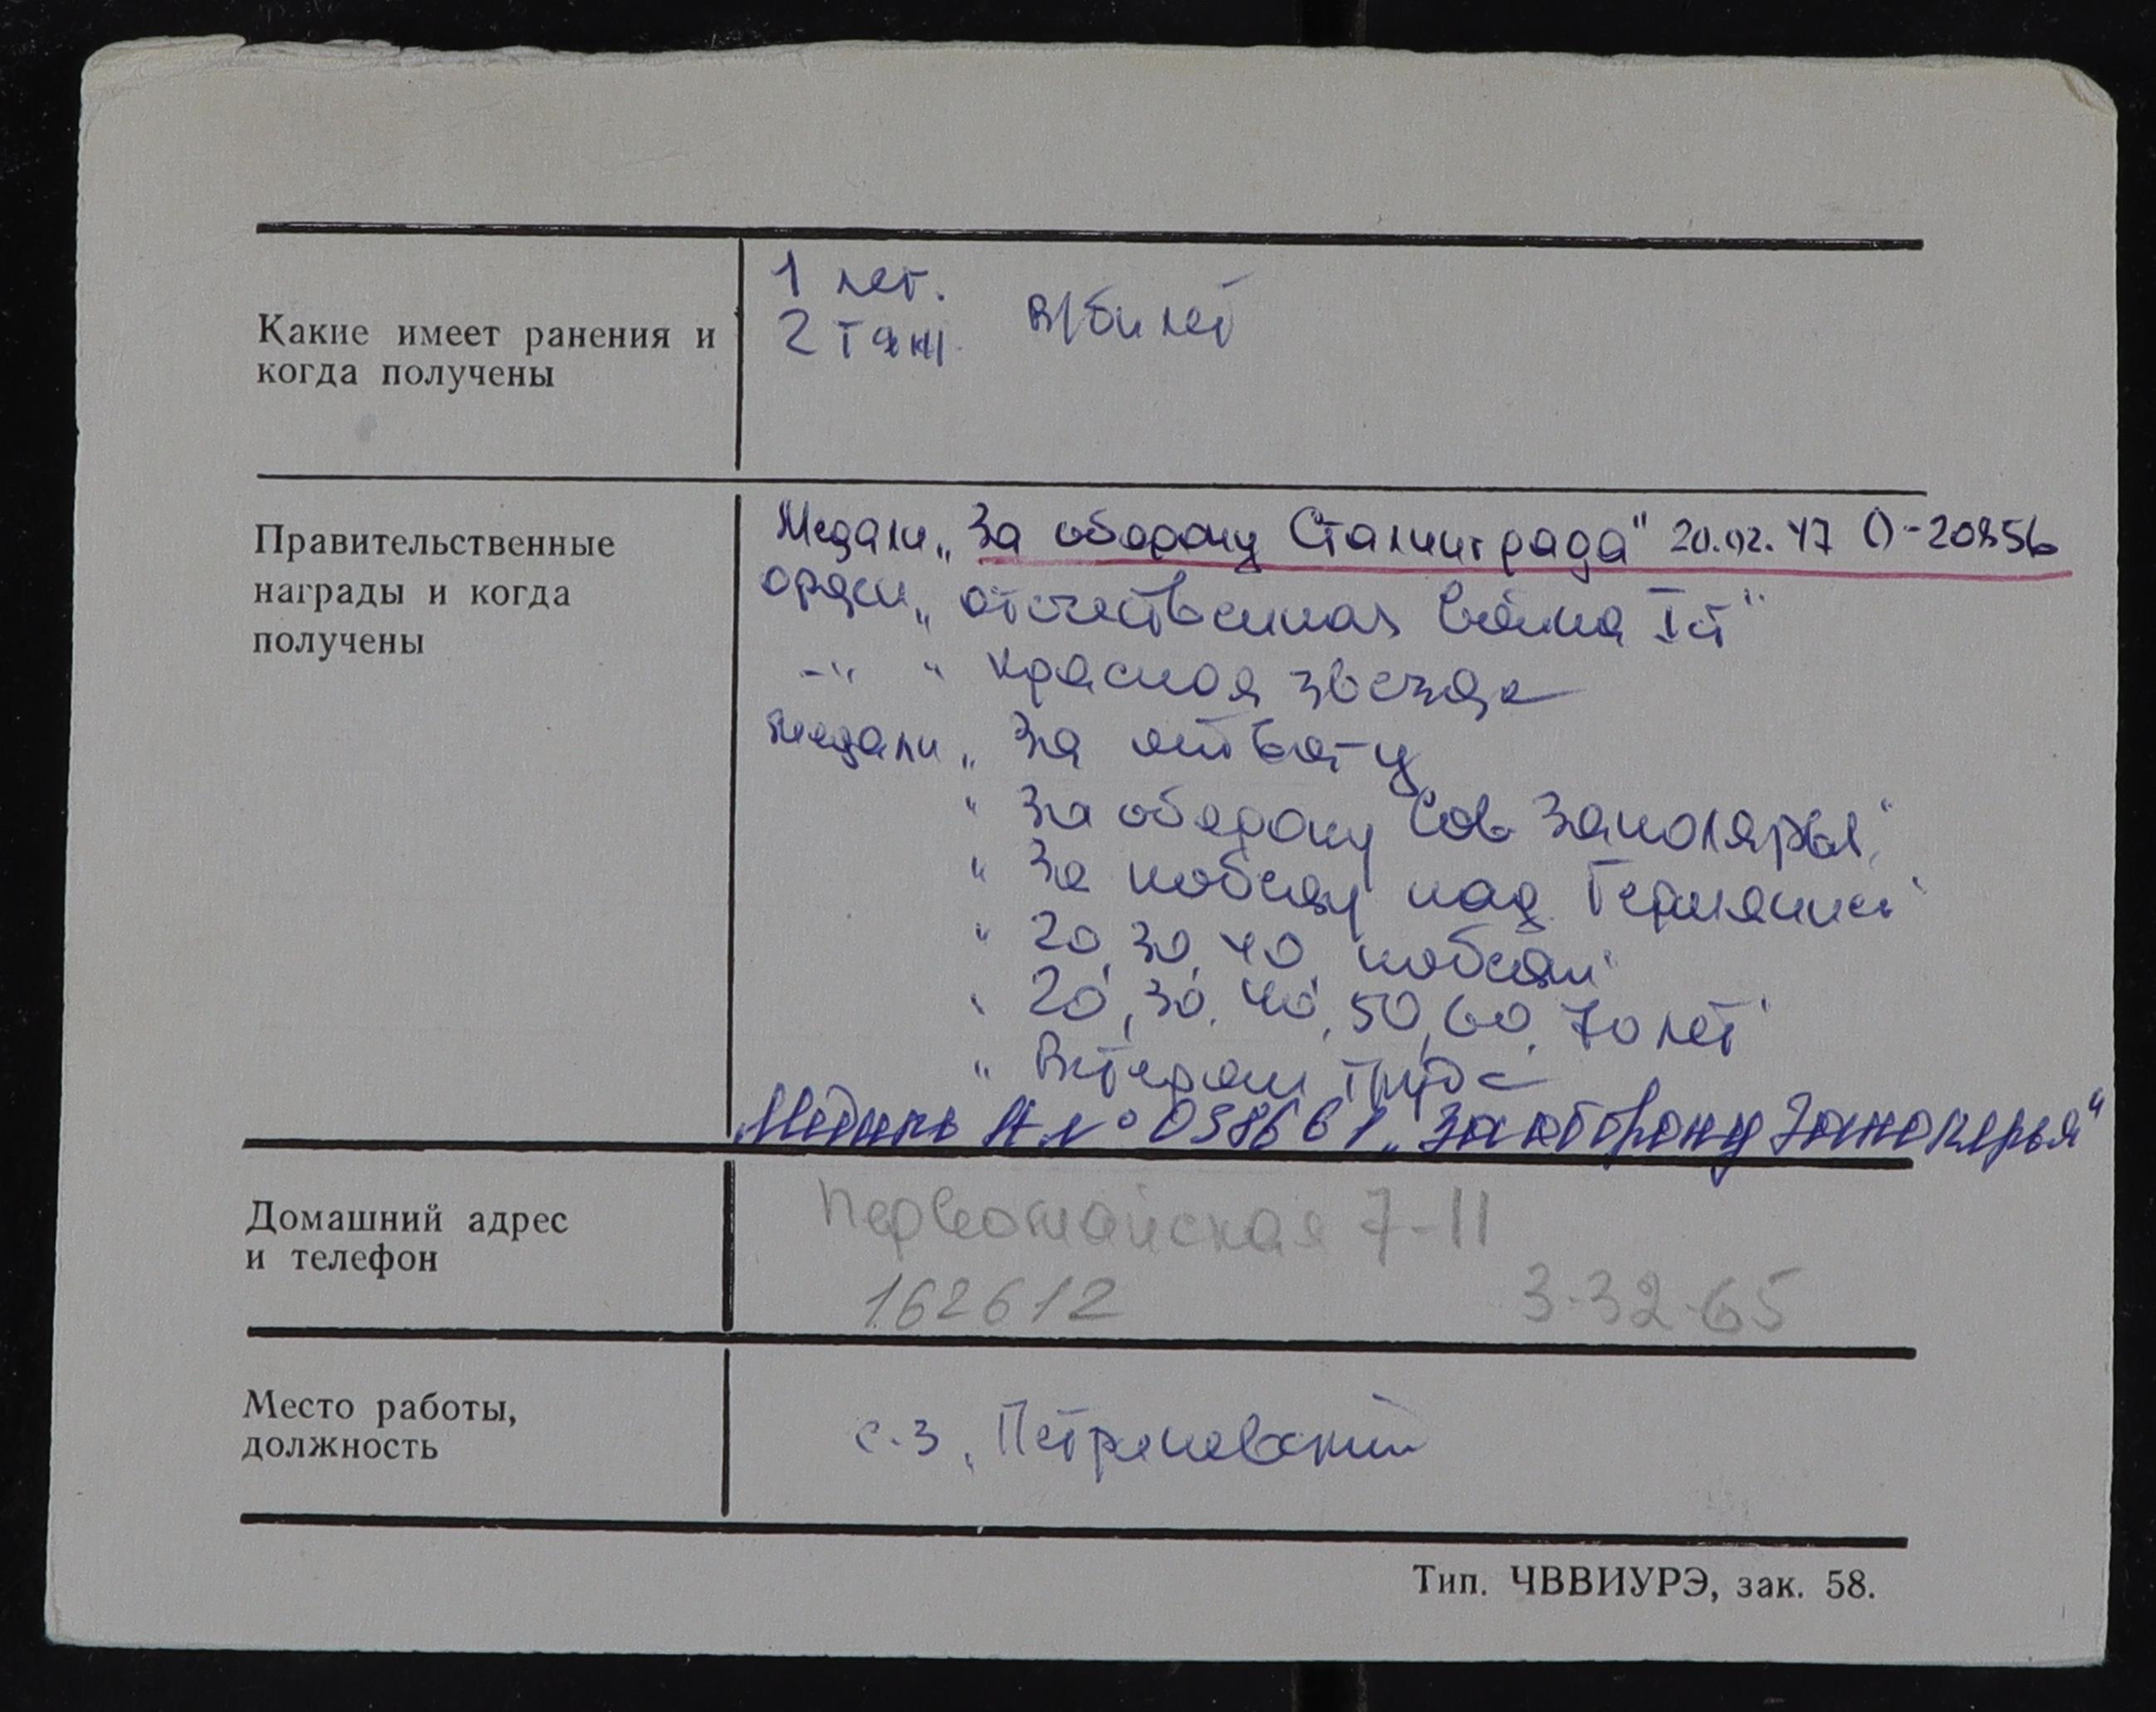 Какие имеет ранения и
когда получены
1 лег.
2 тяж. в/билет
Правительственные
награды и когда
получены
Медали „За оборону Сталинграда" 20.02.47 О-20856
орден „отечественная война I ст"
-"- " красная звезда
медали „За отвагу
" За оборону Сов Заполярья"
" За победу над Германией"
" 20, 30, 40, победы"
" 20, 30, 40, 50, 60, 70 лет"
" Ветеран труда
Медаль А № 038661 „За оборону Заполярья"
Домашний адрес
и телефон
Первомайская 7-11
162612 3-32-65
Место работы,
должность
с-з „Петриневский
Тип. ЧВВИУРЭ, зак. 58.